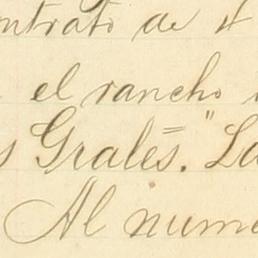 ntrato de 4
el rancho
s Grales. "La
Al nume